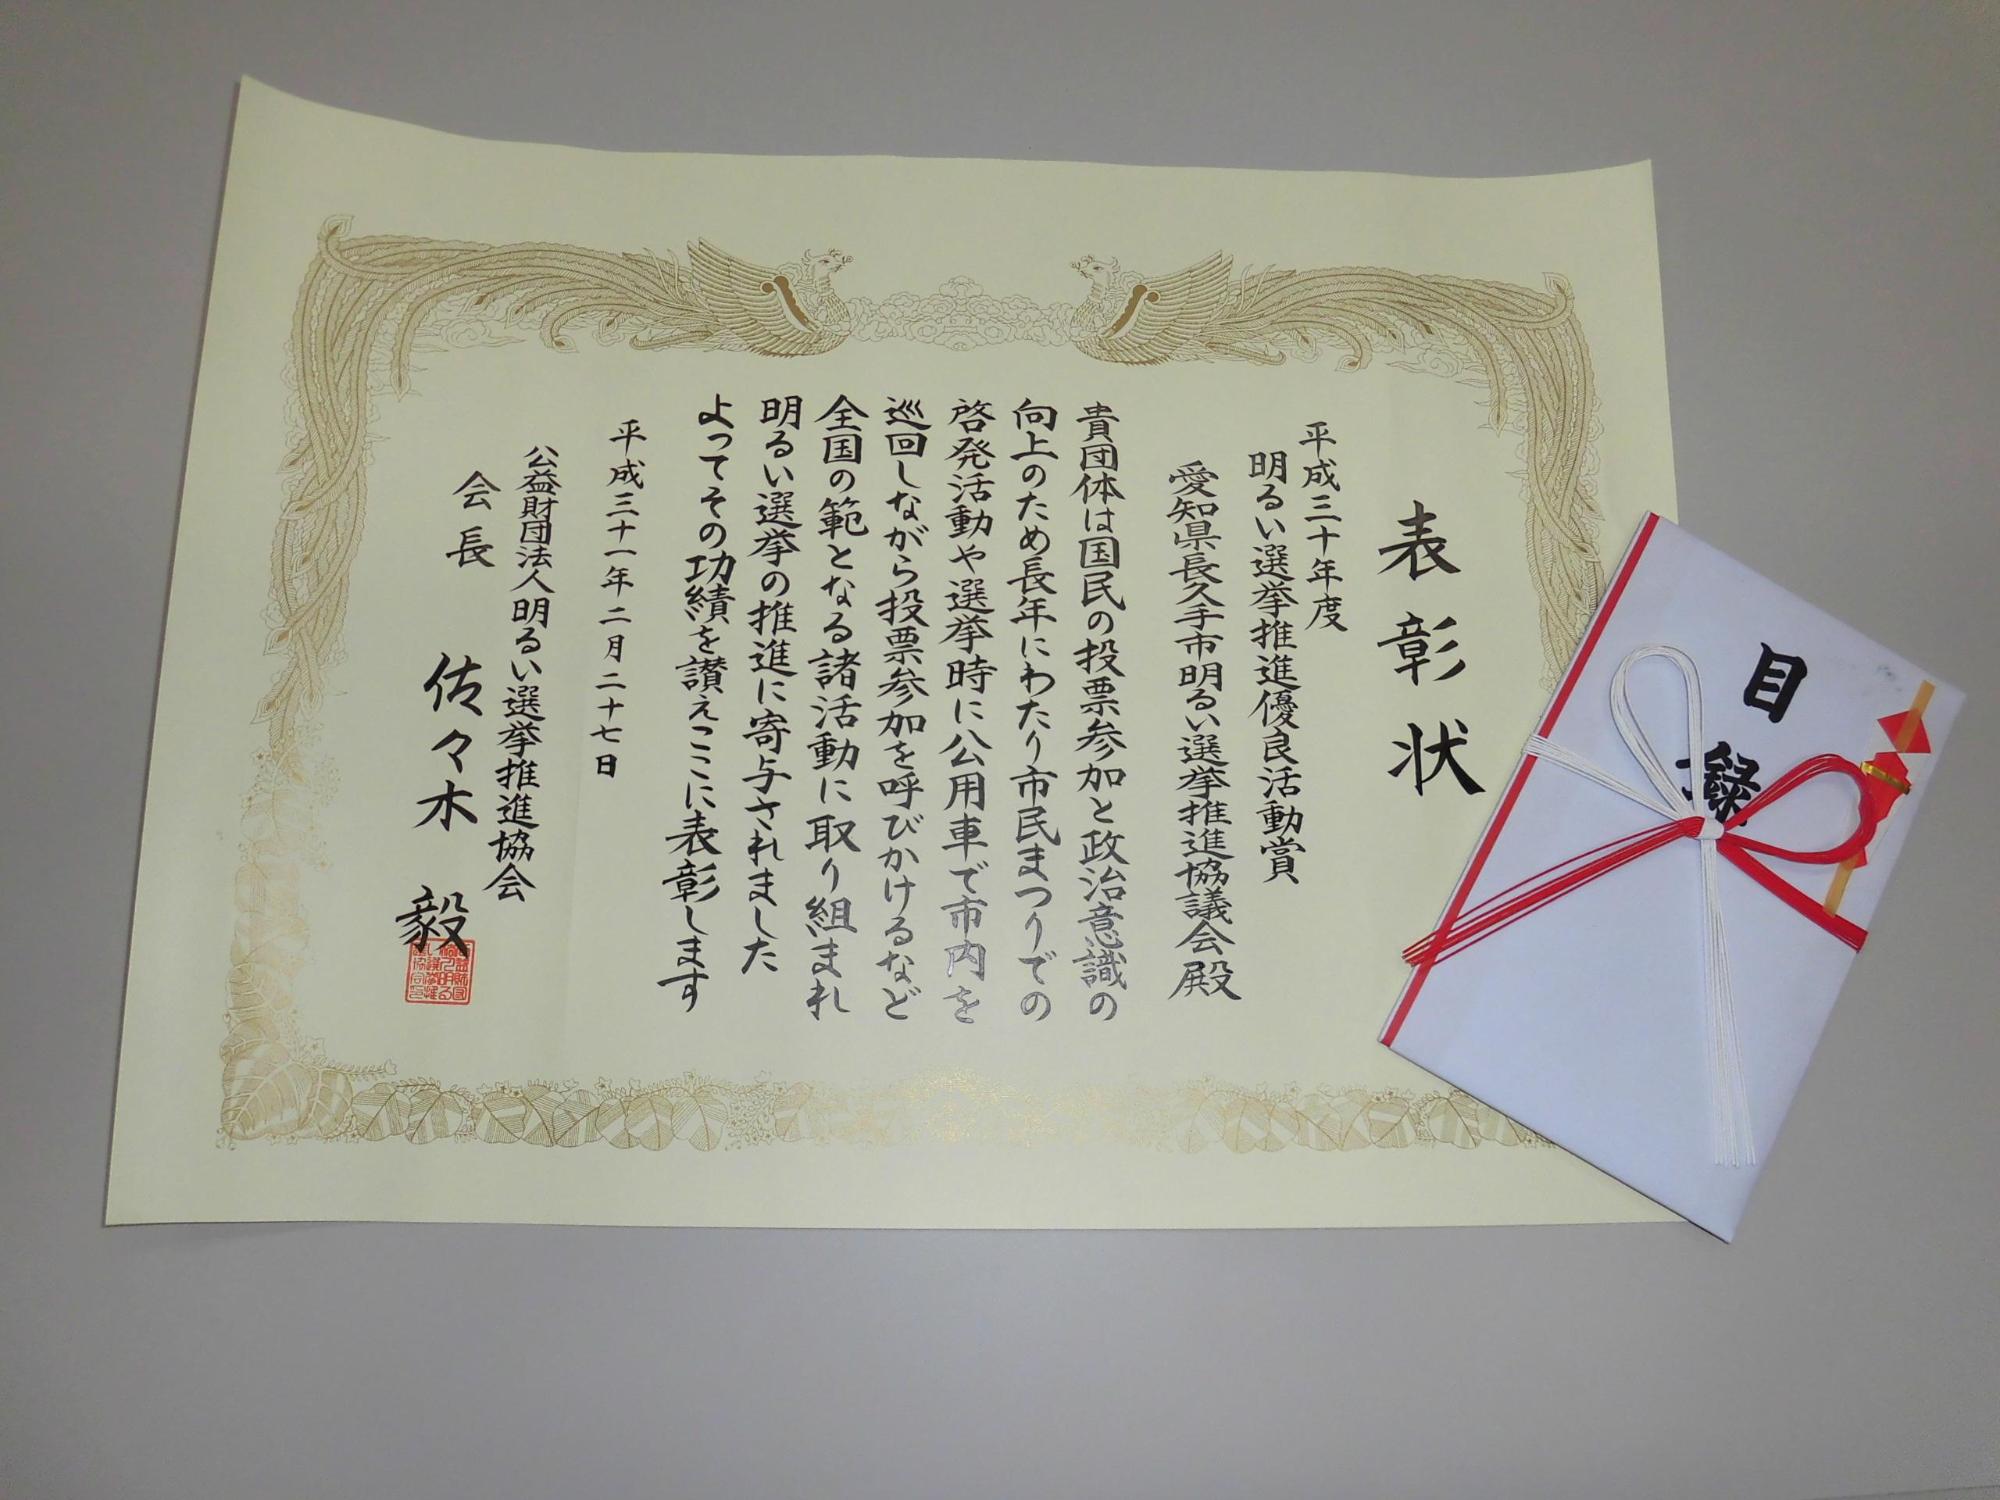 表彰状
平成三十年度
明るい選挙推進優良活動賞
愛知県長久手市明るい選挙推進協議会殿
貴団体は国民の投票参加と政治意識の
向上のため長年にわたり市民まつりでの
啓発活動や選挙時に公用車で市内を
巡回しながら投票参加を呼びかけるなど
全国の範となる諸活動に取り組まれ
明るい選挙の推進に寄与されました
よってその功績を讃えここに表彰します
平成三十一年二月二十七日
公益財団法人明るい選挙推進協会
会長 佐々木毅
目録